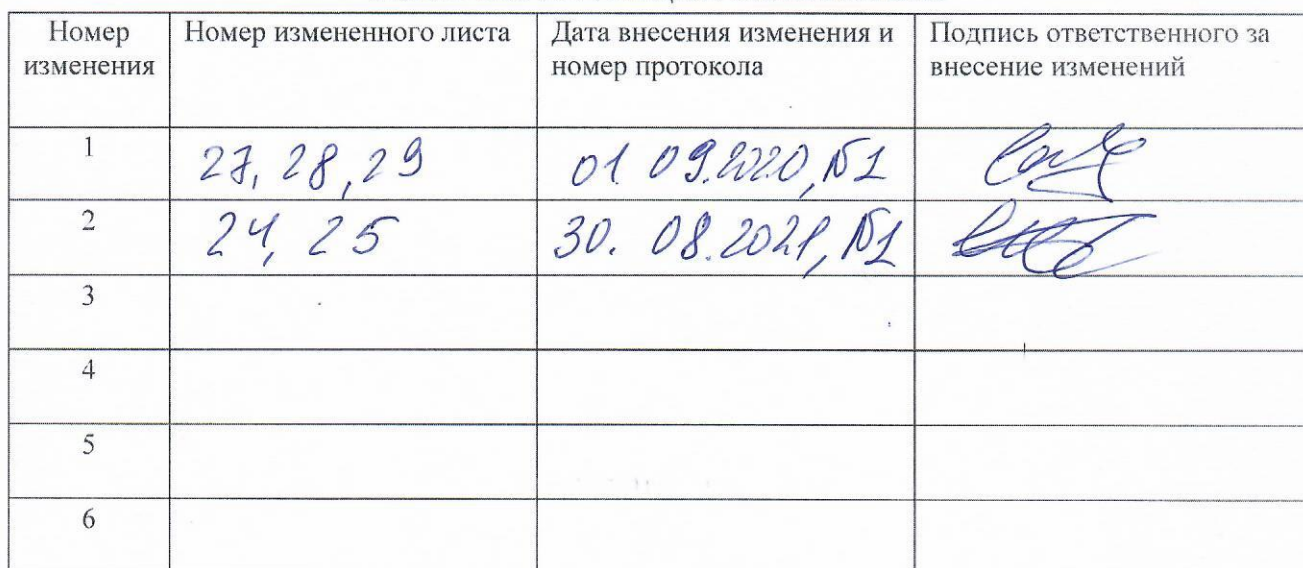 Номер изменения | Номер измененного листа | Дата внесения изменения и номер протокола | Подпись ответственного за внесение изменений
1 | 27, 28, 29 | 01.09.2020, №1
2 | 24, 25 | 30.08.2021, №1
3
4
5
6